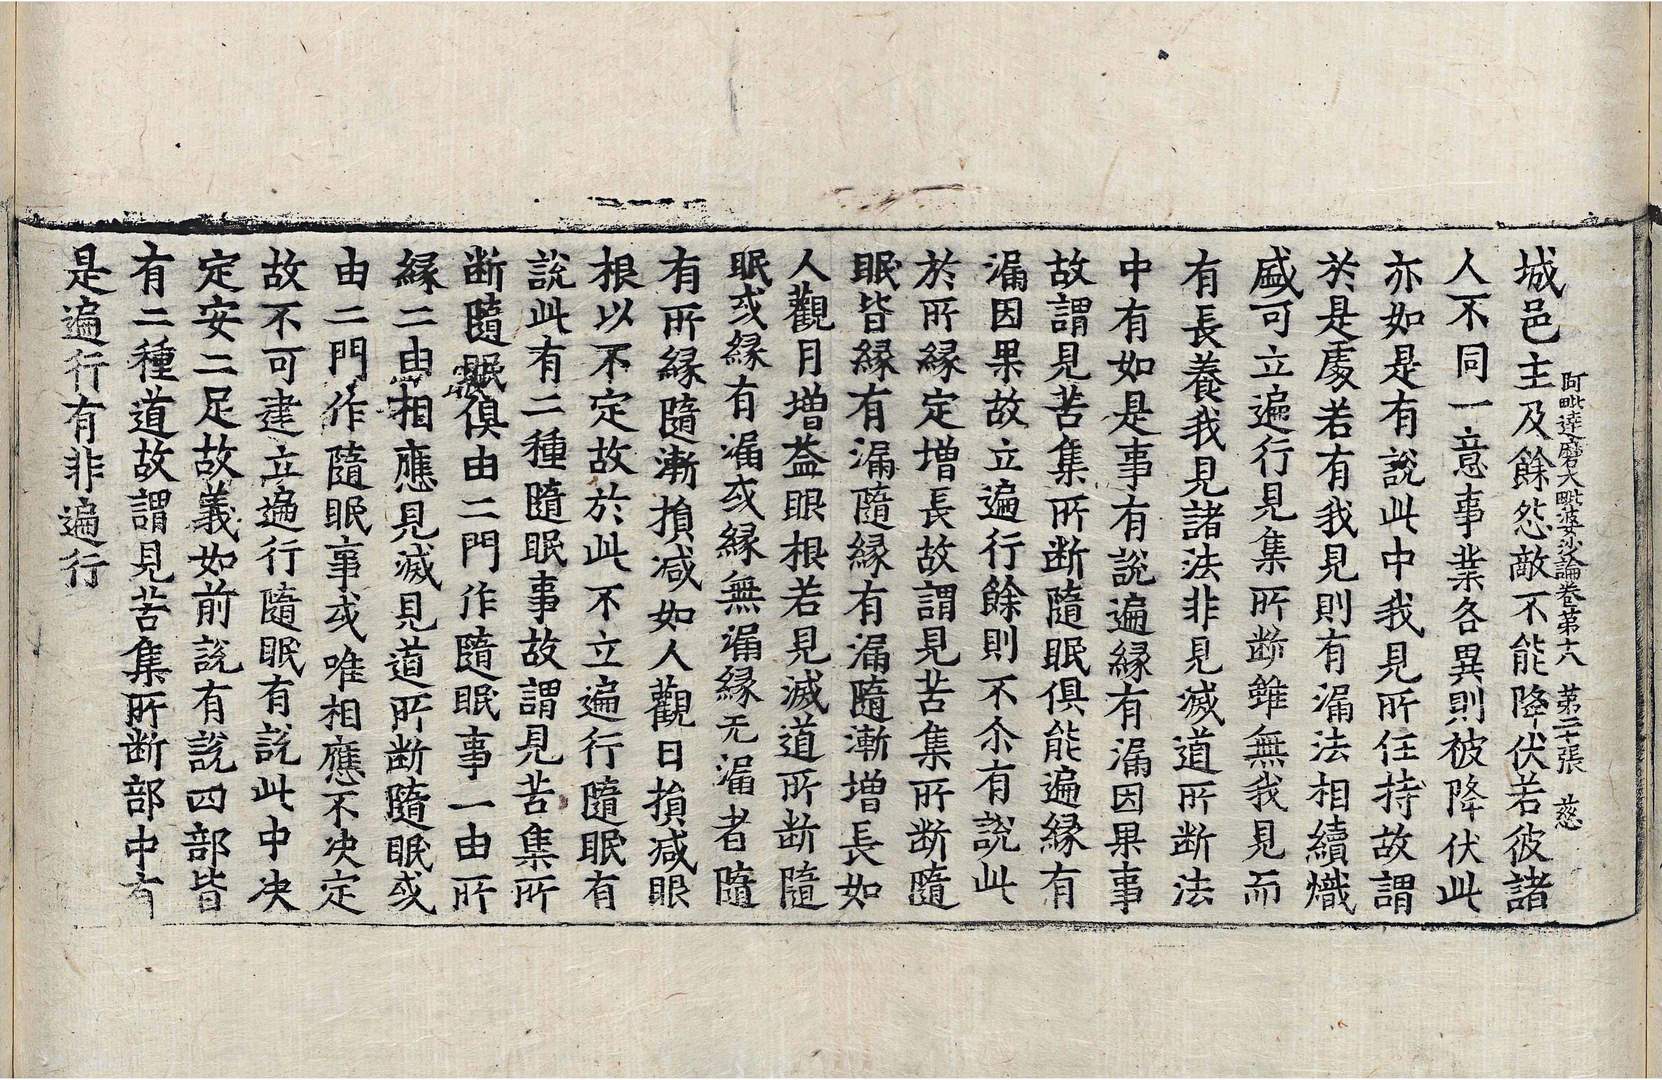 阿毗達磨大毗婆沙論卷第十八　第二十張　慈
城邑主及餘怨敵不能降伏若彼諸
人不同一意事業各異則被降伏此
亦如是有說此中我見所任持故謂
於是處若有我見則有漏法相續熾
盛可立遍行見集所断雖無我見而
有長養我見諸法非見滅道所断法
中有如是事有說遍緣有漏因果事
故謂見苦集所断隨眠俱能遍緣有
漏因果故立遍行餘則不尒有說此
於所緣定增長故謂見苦集所断隨
眠皆緣有漏隨緣有漏隨漸增長如
人觀月增益眼根若見滅道所断隨
眠或緣有漏或緣無漏緣无漏者隨
有所緣隨漸損減如人觀日損減眼
根以不定故於此不立遍行隨眠有
說此有二種隨眠事故謂見苦集所
断隨眠俱由二門作隨眠事一由所
緣二由相應見滅見道所断隨眠或
由二門作隨眠事或唯相應不决定
故不可建立遍行隨眠有說此中决
定安二足故義如前說有說四部皆
有二種道故謂見苦集所断部中有
是遍行有非遍行